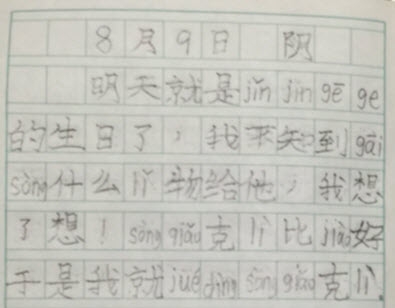 8月9日 阴
明天就是jīn jin gē ge
的生日了，我不知到gāi
sòng什么lǐ物给他，我想
了想！sòng qiǎo克lì比jiào好
于是我就jué dìng sòng qiǎo克lì